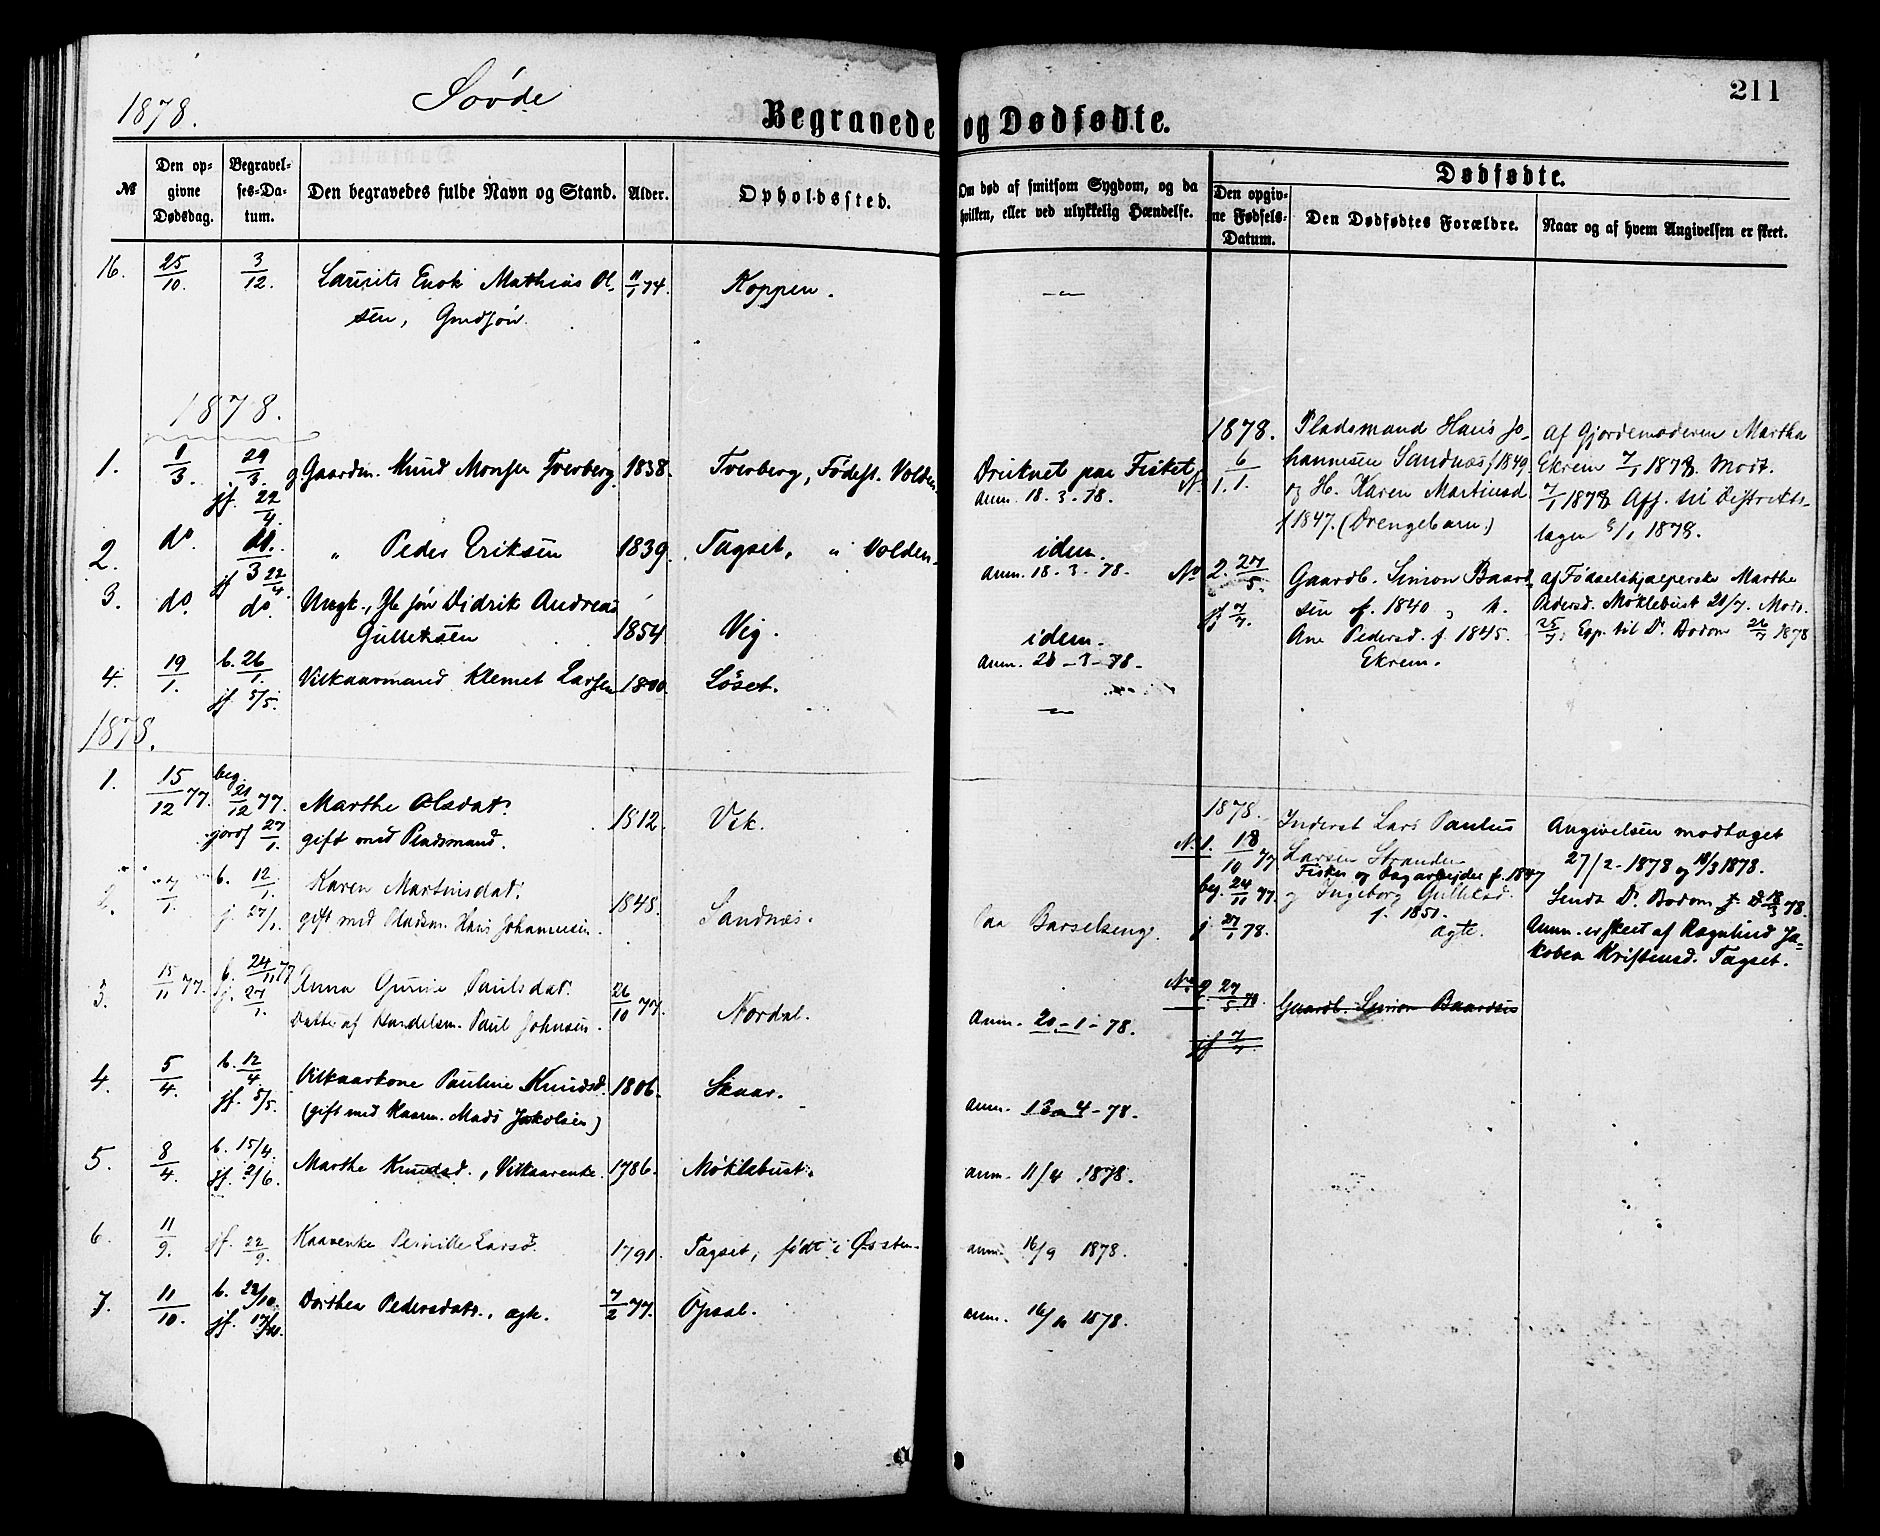 1878.
Sovde
Begravede og Dødfødte.
211
№
Den op-
givne
Dødsdag.
Begravel-
ses-Da-
tum.
Den begravedes fulde Navn og Stand.
Alder.
Opholdssted.
Om død af smitsom Sygdom, og da
hvilken, eller ved ulykkelig Hændelse.
Dødfødte.
Den opgiv-
ne Fødsels-
Datum.
Den Dødfødtes Forældre.
Naar og af hvem Angivelsen er skeet.
16. 25/10. 3/12. Laurits Enok Mathias Ol- 11/1 74. Koppen. —"—
sen,
1878.
1. 1/3. 29/3. g. Gaardm. Knud Monsen Tverberg 1838. Tverberg, Fødest. Volden. Druknet paa Fisket
jf. 22/4. anm. 18.-3.-78.
2. do. do. " Peder Eriksen 1839. Tagset, " Volden. idem.
3 jf 22/4. anm. 18-3-78.
3. do. do. Ungk., Didrik Andreas
Gulleksen 1854 Vig. idem.
anm. 20-3-78.
4. 19/1. b. 26/1. Vilkaarmand Klemet Larsen 1800 Løset.
jf 5/5. —"—
1878. Pladsmand Hans Jo-
6/1. hannesen Sandnæs f 1849
N. 1. og H. Karen Martinsd
f 1847. (Drengebarn.)
af Gjordemoderen Martha
Ekrem 7/1 1878. Modt.
7/1 1878 Aff. til Distrikts-
lægen 8/1 1878.
No 2. 27/5. Gaardb. Simon Baard
jf 7/7. sen f. 1840 h.
Ane Pedersd. f. 1845.
Ekrem.
af Fødselshjælperske Marthe
Pedersd. Møklebust 20/7. Modt.
25/7. Exp. til Dr. Bodom 26/7 1878
1878.
1. 15/12 77. beg. 21/12 77. Marthe Olsdat. 1812. Vik.
jordf 27/1. gift med Pladsmand.
2. 7/1. b. 12/1. Karen Martinsdat. 1848. Sandnæs. Paa Barselseng.
j. 27/1. gift med Pladsm. Hans Johannesen.
3. 15/11 77. b. 24/11 77 Anna Gurine Paulsdat. 26/10 77. Nordal. Anm. 20-1-78.
j. 27/1. Datter af Handelsm. Paul Johnsen.
4. 5/4. b. 12/4. Vilkaarkone Pauline Knudsd. 1806. Skaar. anm. 13-4-78.
jf. 5/5. (gift med Kaarm. Mads Jakobsen)
5. 8/4. b. 15/4. Marthe Knudsd., Vilkaarenke. 1786. Møklebust. anm. 11/4 1878.
jf. 2/6.
6. 11/9. jf. 22/9. Kaarenke Pernille Larsd. 1791. Tagset, født i Østen- anm. 16/9 1878.
7. 11/10. b. 22/10. Dorthea Pedersdatr., ægte. 7/2 77. Opsal. anm. 16/10 1878.
jf. 17/11.
1878. Inderst Lars Paulus
N. 1. 18/10 77 Larsen Stranden
Fisker og Dagarbejder f. 1847
beg. 24/11 77. og Ingeborg Gulliksd.
f. 1851.
j 27/1 78. ægte.
Angivelsen modtaget
27/2-1878 og 18/3 1878.
Sendt Dr. Bodom d. 18/3 78.
Anm. er skeet af Ragnhild Ja-
kobea Kristensd. Tagset.
No 2 27/5 78. Gaardb. Simon Baardsen
jf 7/7.